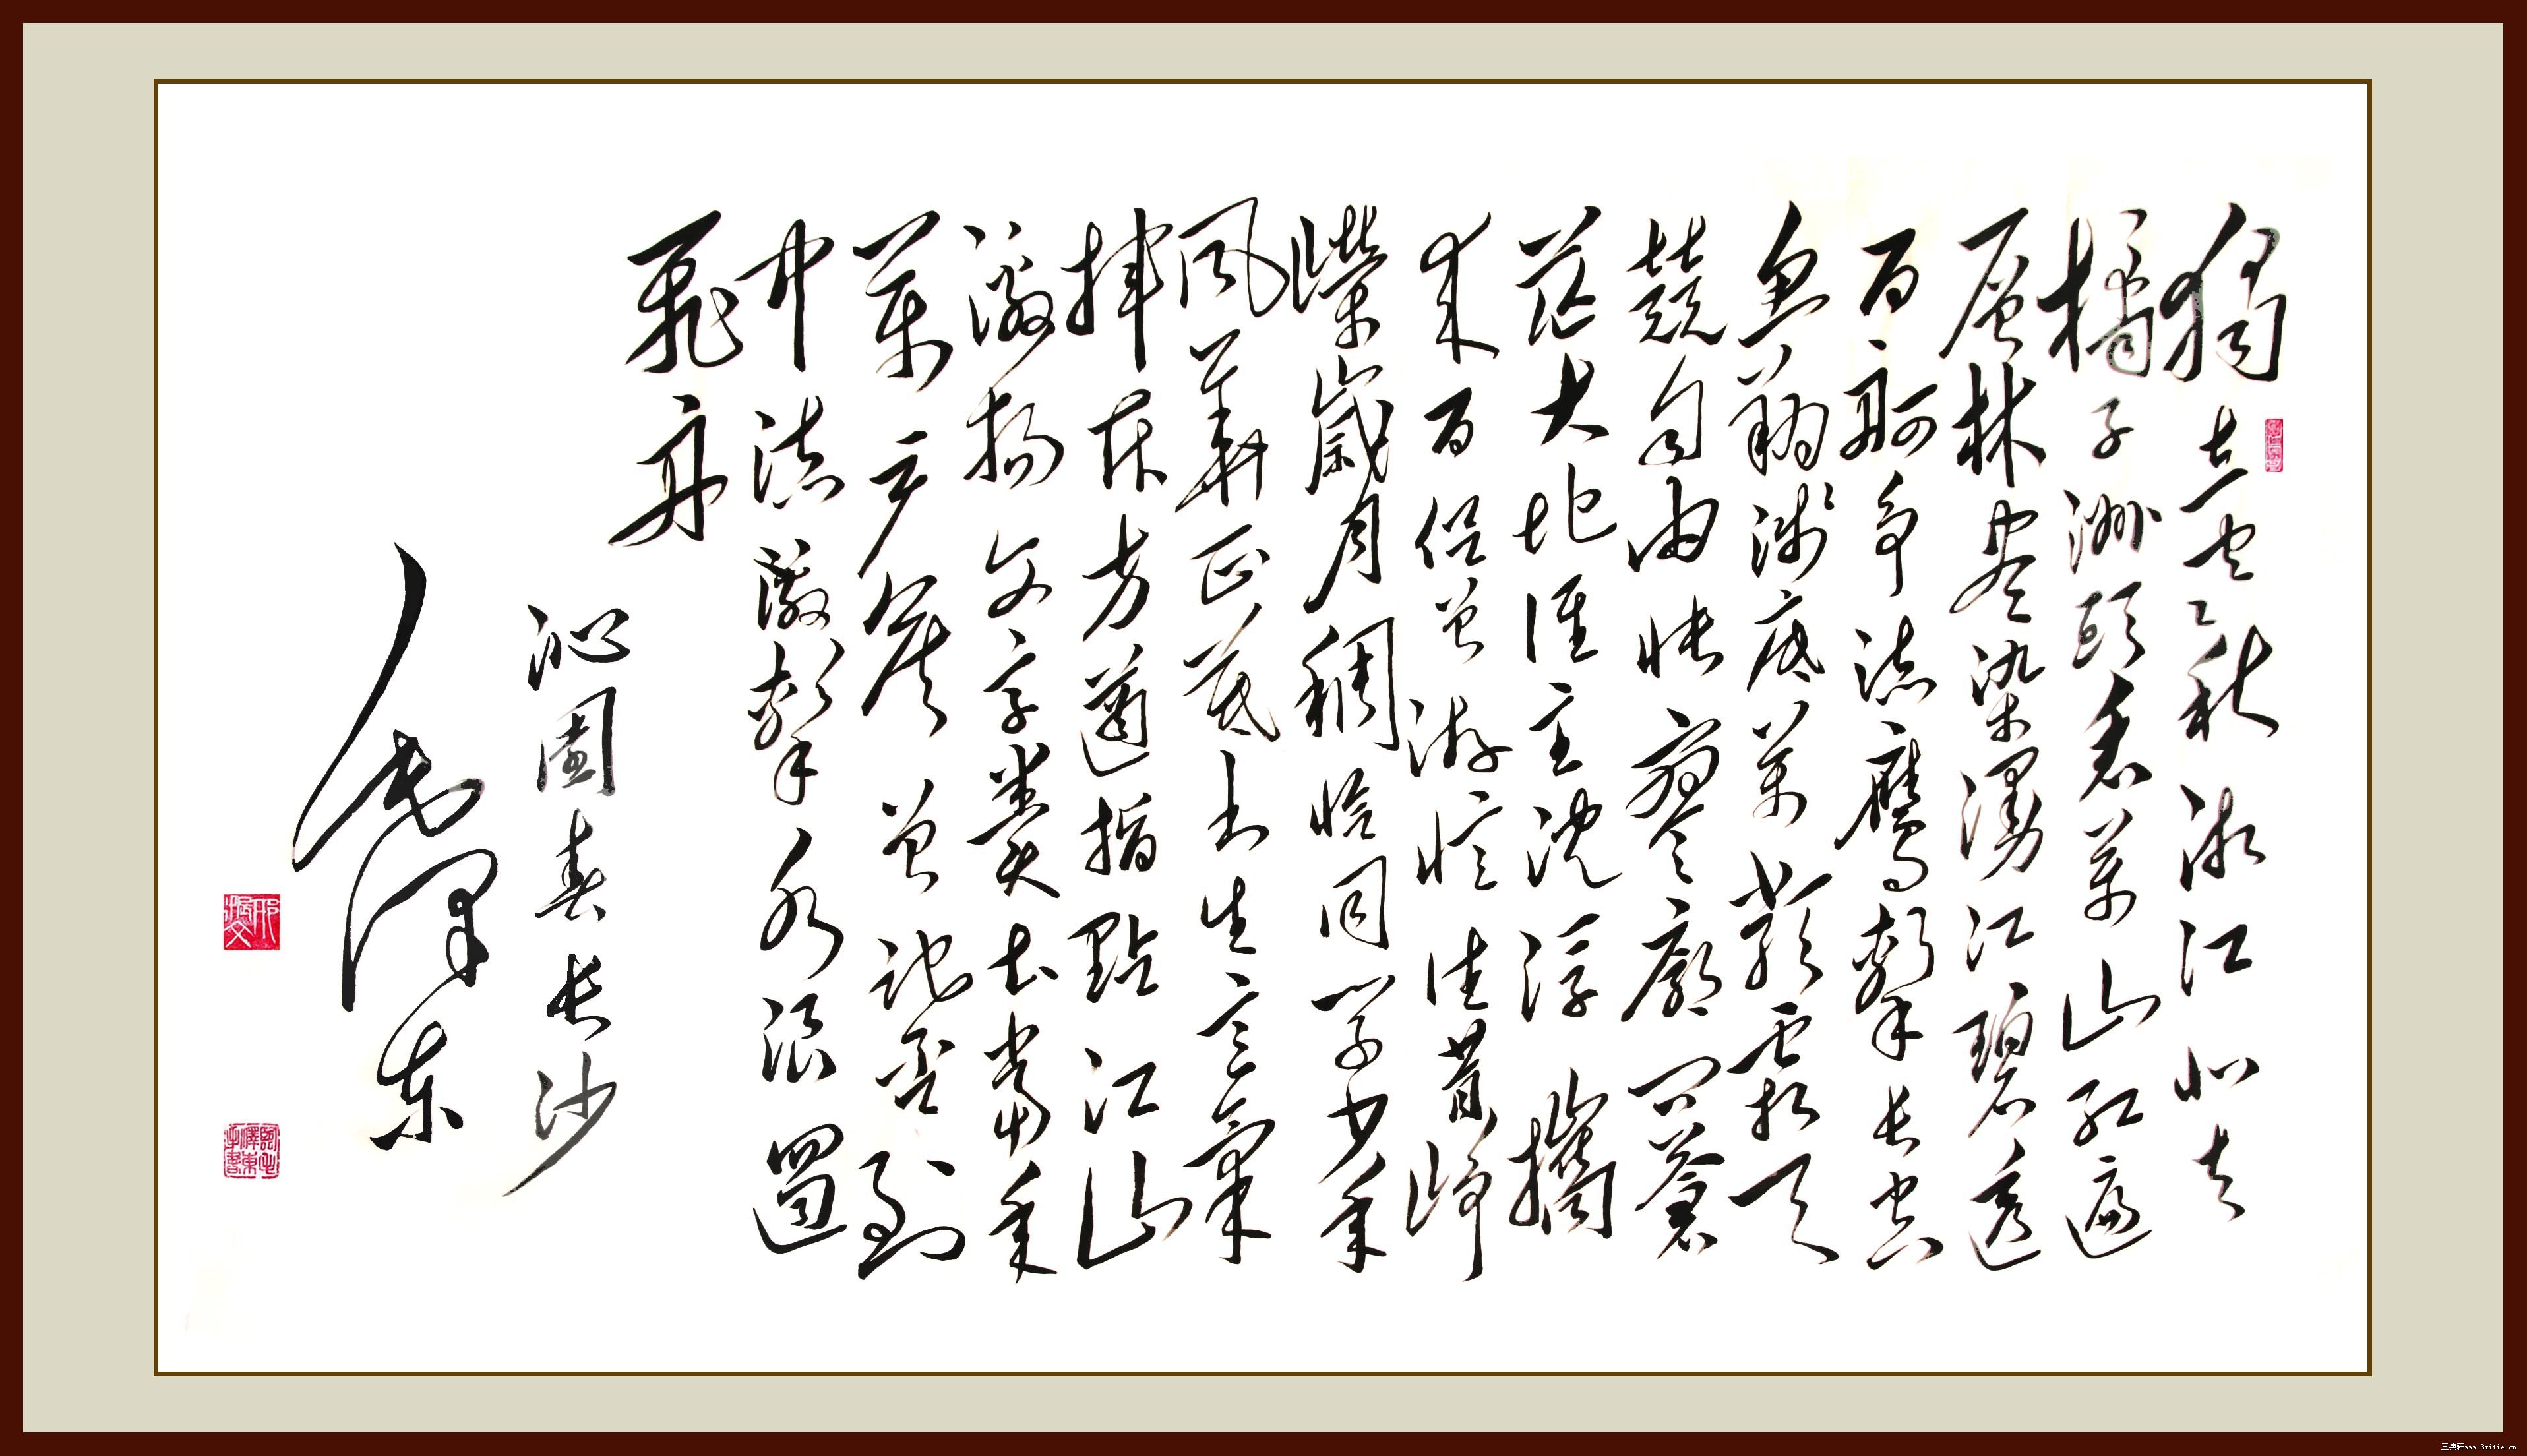 獨立寒秋湘江北去
橘子洲頭看萬山紅遍
層林盡染漫江碧透
百舸爭流鷹擊長空
魚翔淺底萬類霜天
競自由悵寥廓問蒼
茫大地誰主沈浮攜
來百侶曾游憶往昔崢
嶸歲月稠恰同學少年
風華正茂書生意氣
揮斥方遒指點江山
激揚文字糞土當年
萬戶侯曾記否到
中流激擊水浪遏
飛舟
沁園春長沙
毛澤東
三典轩www.3zitie.cn